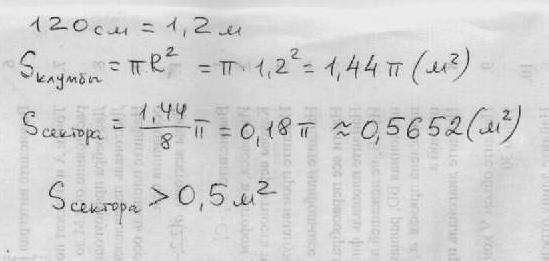 120 см = 1,2 м
Sклумбы = πR² = π · 1,2² = 1,44π (м²)
Sсектора = 1,44/8 π = 0,18π ≈ 0,5652 (м²)
Sсектора > 0,5 м²